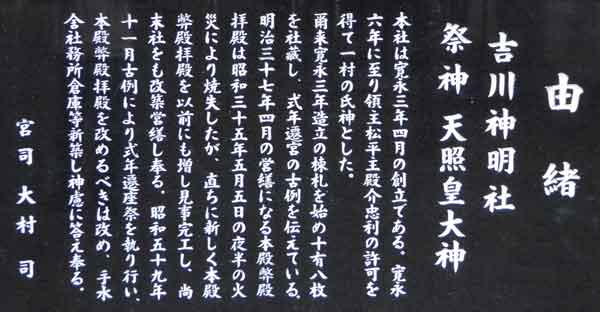 由緒
吉川神明社
祭神 天照皇大神
本社は寛永三年四月の創立である。寛永
六年に至り領主松平主殿介忠利の許可を
得て一村の氏神とした。
爾来寛永三年造立の棟札を始め十有八枚
を社蔵し、式年遷宮の古例を伝えている。
明治三十七年四月の営繕になる本殿幣殿
拝殿は昭和三十五年五月五日の夜半の火
災により焼失したが、直ちに新しく本殿
幣殿拝殿を以前にも増し見事完工し、尚
末社をも改築営繕し奉る。昭和五十九年
十一月古例により式年遷座祭を執り行い、
本殿幣殿拝殿を改めるべきは改め、手水
舎社務所倉庫等新築し神慮に答え奉る。
宮司 大村 司